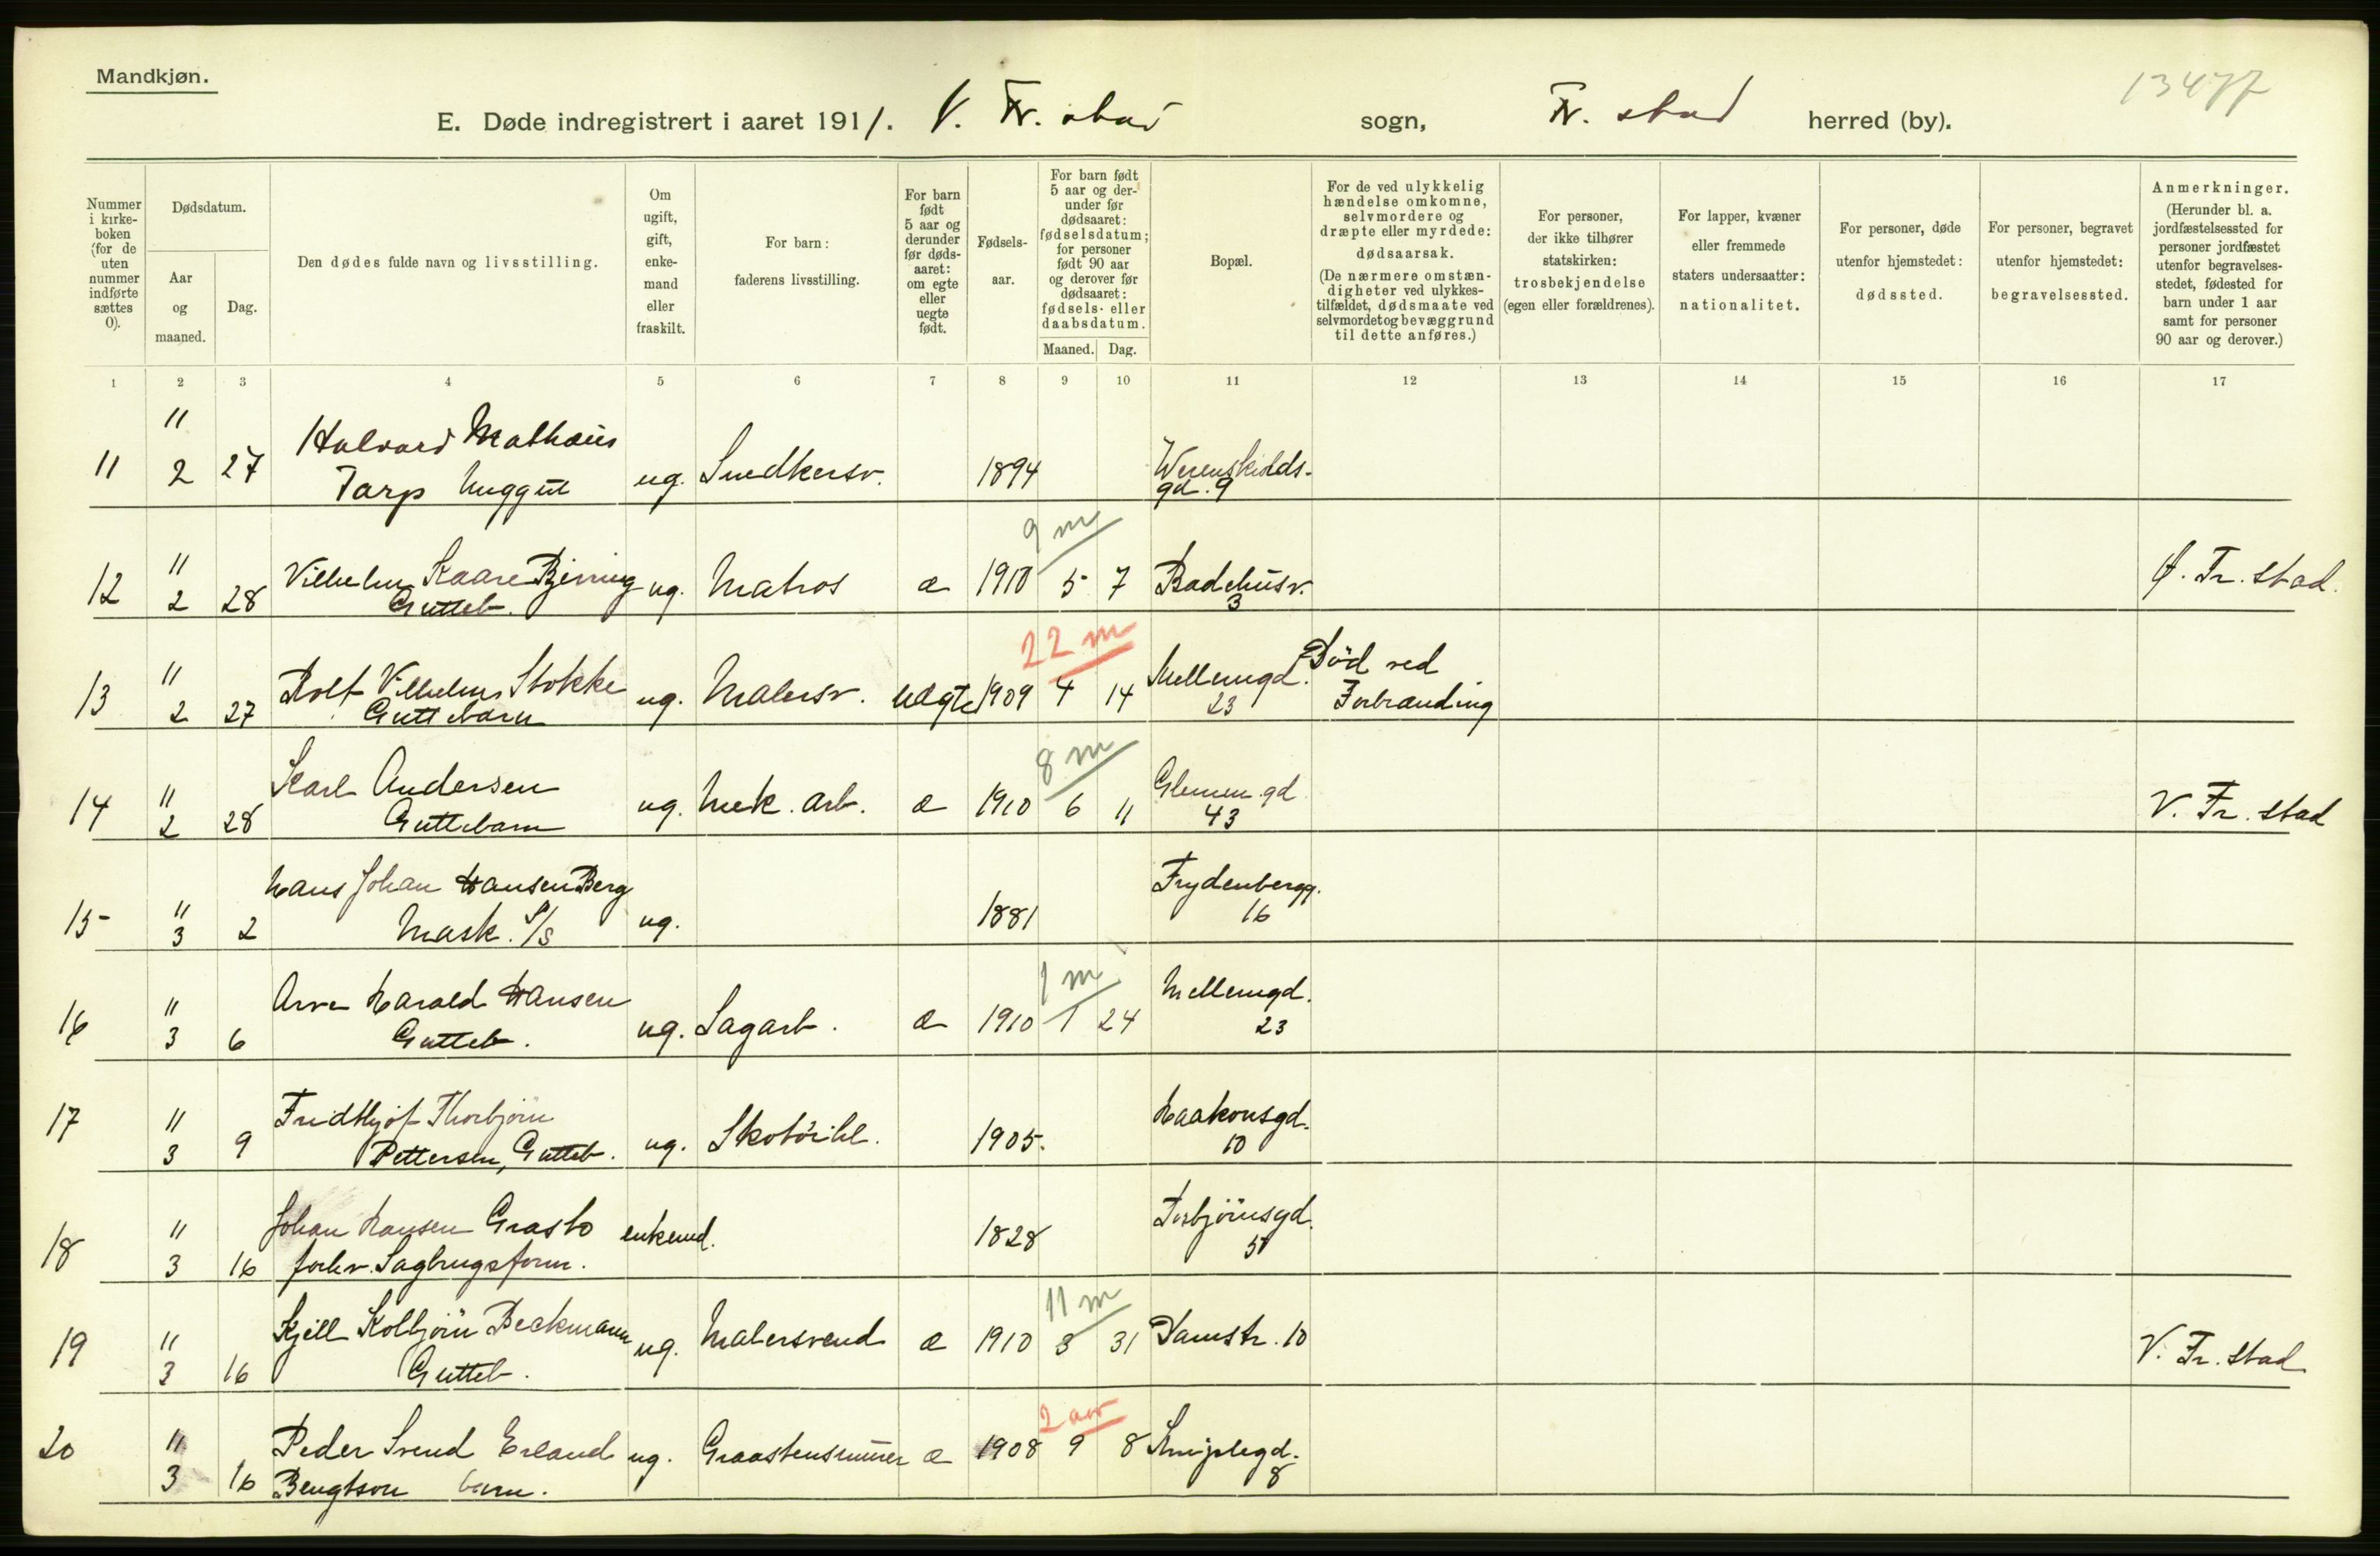 Mandkjøn.
13477
E. Døde indregistrert i aaret 1911. V. Fr. stad sogn, Fr. stad herred (by).
Nummer i kirke- boken (for de uten nummer indførte sættes 0).
Dødsdatum.
Aar og maaned.
Dag.
Den dødes fulde navn og livsstilling.
Om ugift, gift, enke- mand eller fraskilt.
For barn: faderens livsstilling.
For barn født 5 aar og derunder før døds- aaret: om egte eller uegte født.
Fødsels- aar.
For barn født 5 aar og der- under før dødsaaret: fødselsdatum; for personer født 90 aar og derover før dødsaaret: fødsels- eller daabsdatum.
Maaned. Dag.
Bopæl.
For de ved ulykkelig hændelse omkomne, selvmordere og dræpte eller myrdede: dødsaarsak. (De nærmere omstæn- digheter ved ulykkes- tilfældet, dødsmaate ved selvmord et og bevæggrund til dette anføres.)
For personer, der ikke tilhører statskirken: trosbekjendelse (egen eller forældrenes).
For lapper, kvæner eller fremmede staters undersaatter: nationalitet.
For personer, døde utenfor hjemstedet: dødssted.
For personer, begravet utenfor hjemstedet: begravelsessted.
Anmerkninger. (Herunder bl. a. jordfæstelsessted for personer jordfæstet utenfor begravelses- stedet, fødested for barn under 1 aar samt for personer 90 aar og derover.)
1 2 3 4 5 6 7 8 9 10 11 12 13 14 15 16 17
11 11 2 27 Halvard Mathæus Tarp ug. Snedkersv. 1894 Werenskiolds- gd. 9
9 m
12 11 2 28 Vilhelm Kaare Bjerring Gutteb. ug. Matros æ 1910 5 7 Badehusv. 3 Ø. Fr. stad.
22 m
13 11 2 27 Rolf Vilhelm Stokke Guttebarn ug. Malersv. uægte 1909 4 14 Mellemgd. 23 Död ved Forbrænding
8 m
14 11 2 28 Karl Andersen Guttebarn ug. Mek. arb. æ 1910 6 11 Glemmengd 43 V. Fr. stad
15 11 3 2 Hans Johan Hansen Berg Mask. S/S ug. 1881 Frydenbergg. 16
1 m
16 11 3 6 Arve Harald Hansen Gutteb. ug. Sagarb. æ 1910 1 24 Mellemgd. 23
17 11 3 9 Fridthjof Thorbjörn Pettersen, Gutteb. ug. Skotöihl. 1905. Haakonsgd. 10
18 11 3 16 Johan Hansen Grasto forhv. Sagbrugsform. enkemd. 1828 Torbjörnsgd. 5
11 m
19 11 3 16 Kjell Kolbjörn Beckmann Gutteb. ug. Malersvend æ 1910 3 31 Damstr. 10 V. Fr. stad
2 aar
20 11 3 16 Peder Svend Erland Bengtson barn. ug. Graastensmurer æ 1908 9 8 Kniplegd. 8